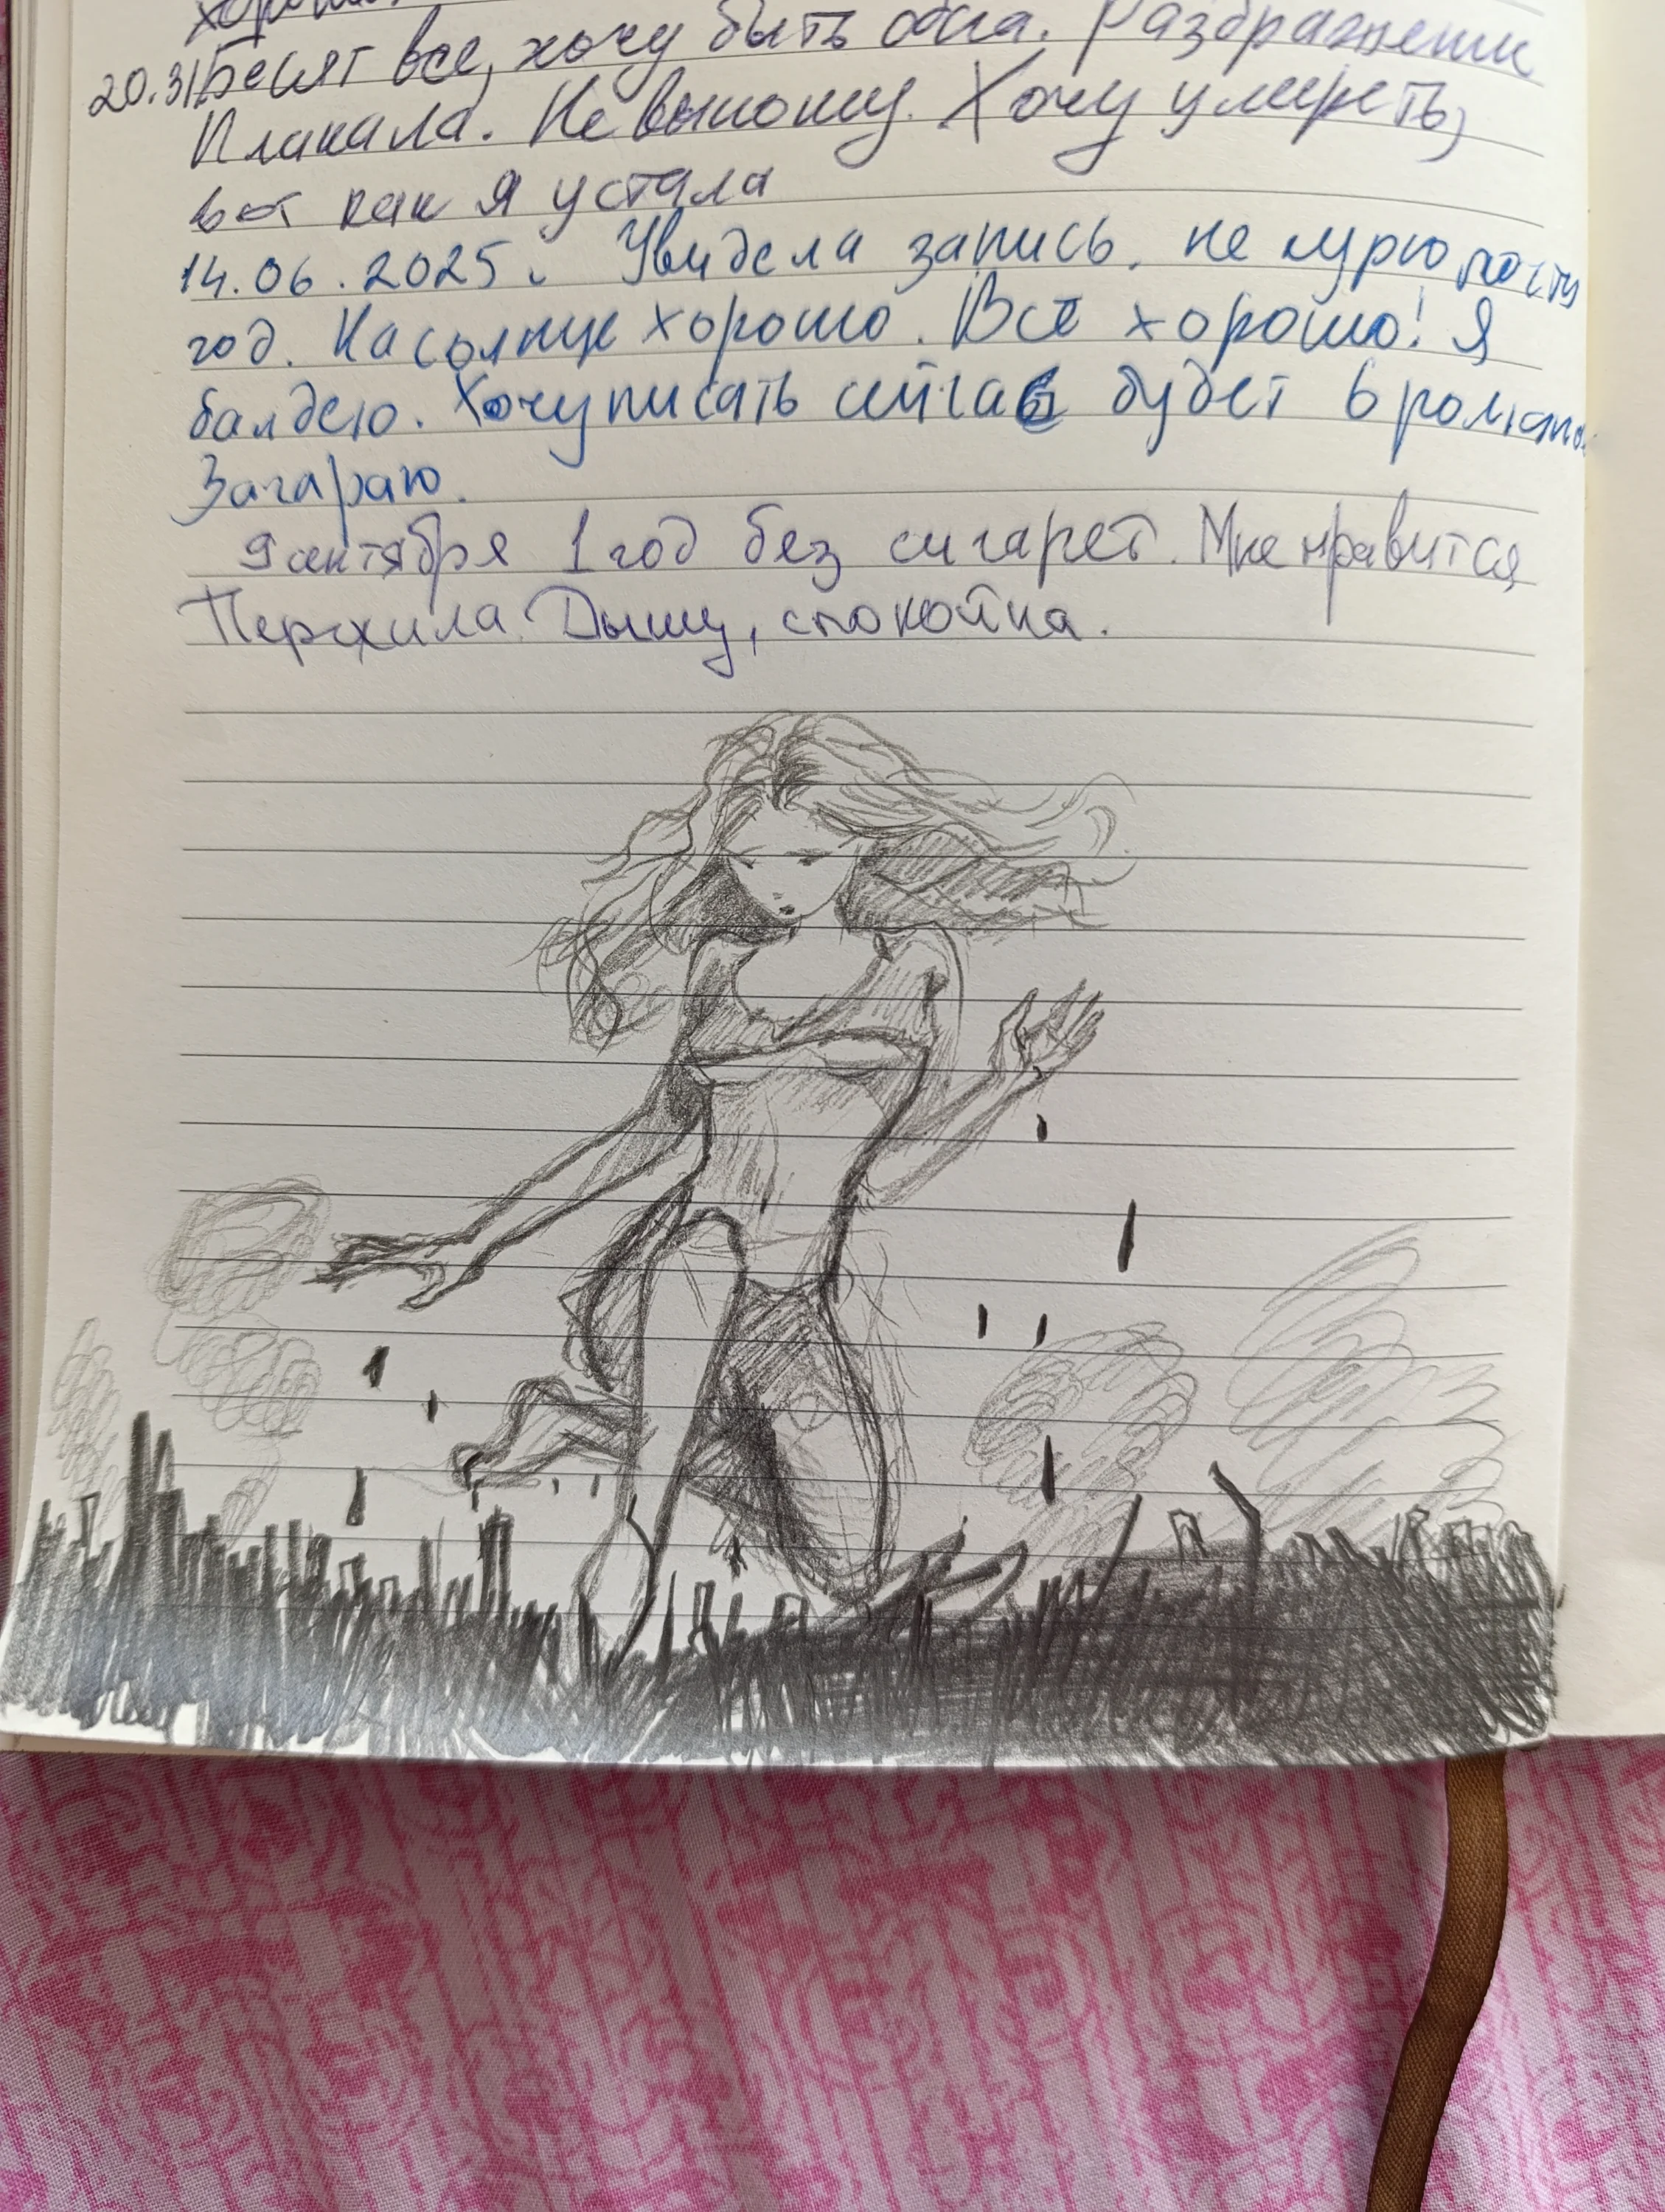 20.31 Бесят все, хочу быть одна. Раздражении
Плакала. Не выношу. Хочу умереть,
вот как я устала
14.06.2025. Увидела запись, не курю почти
год. На солнце хорошо. Всё хорошо! Я
балдею. Хочу писать сейчас будет
Загараю.
9 сентября 1 год без сигарет. Мне нравится
Пережила. Дышу, спокойна.